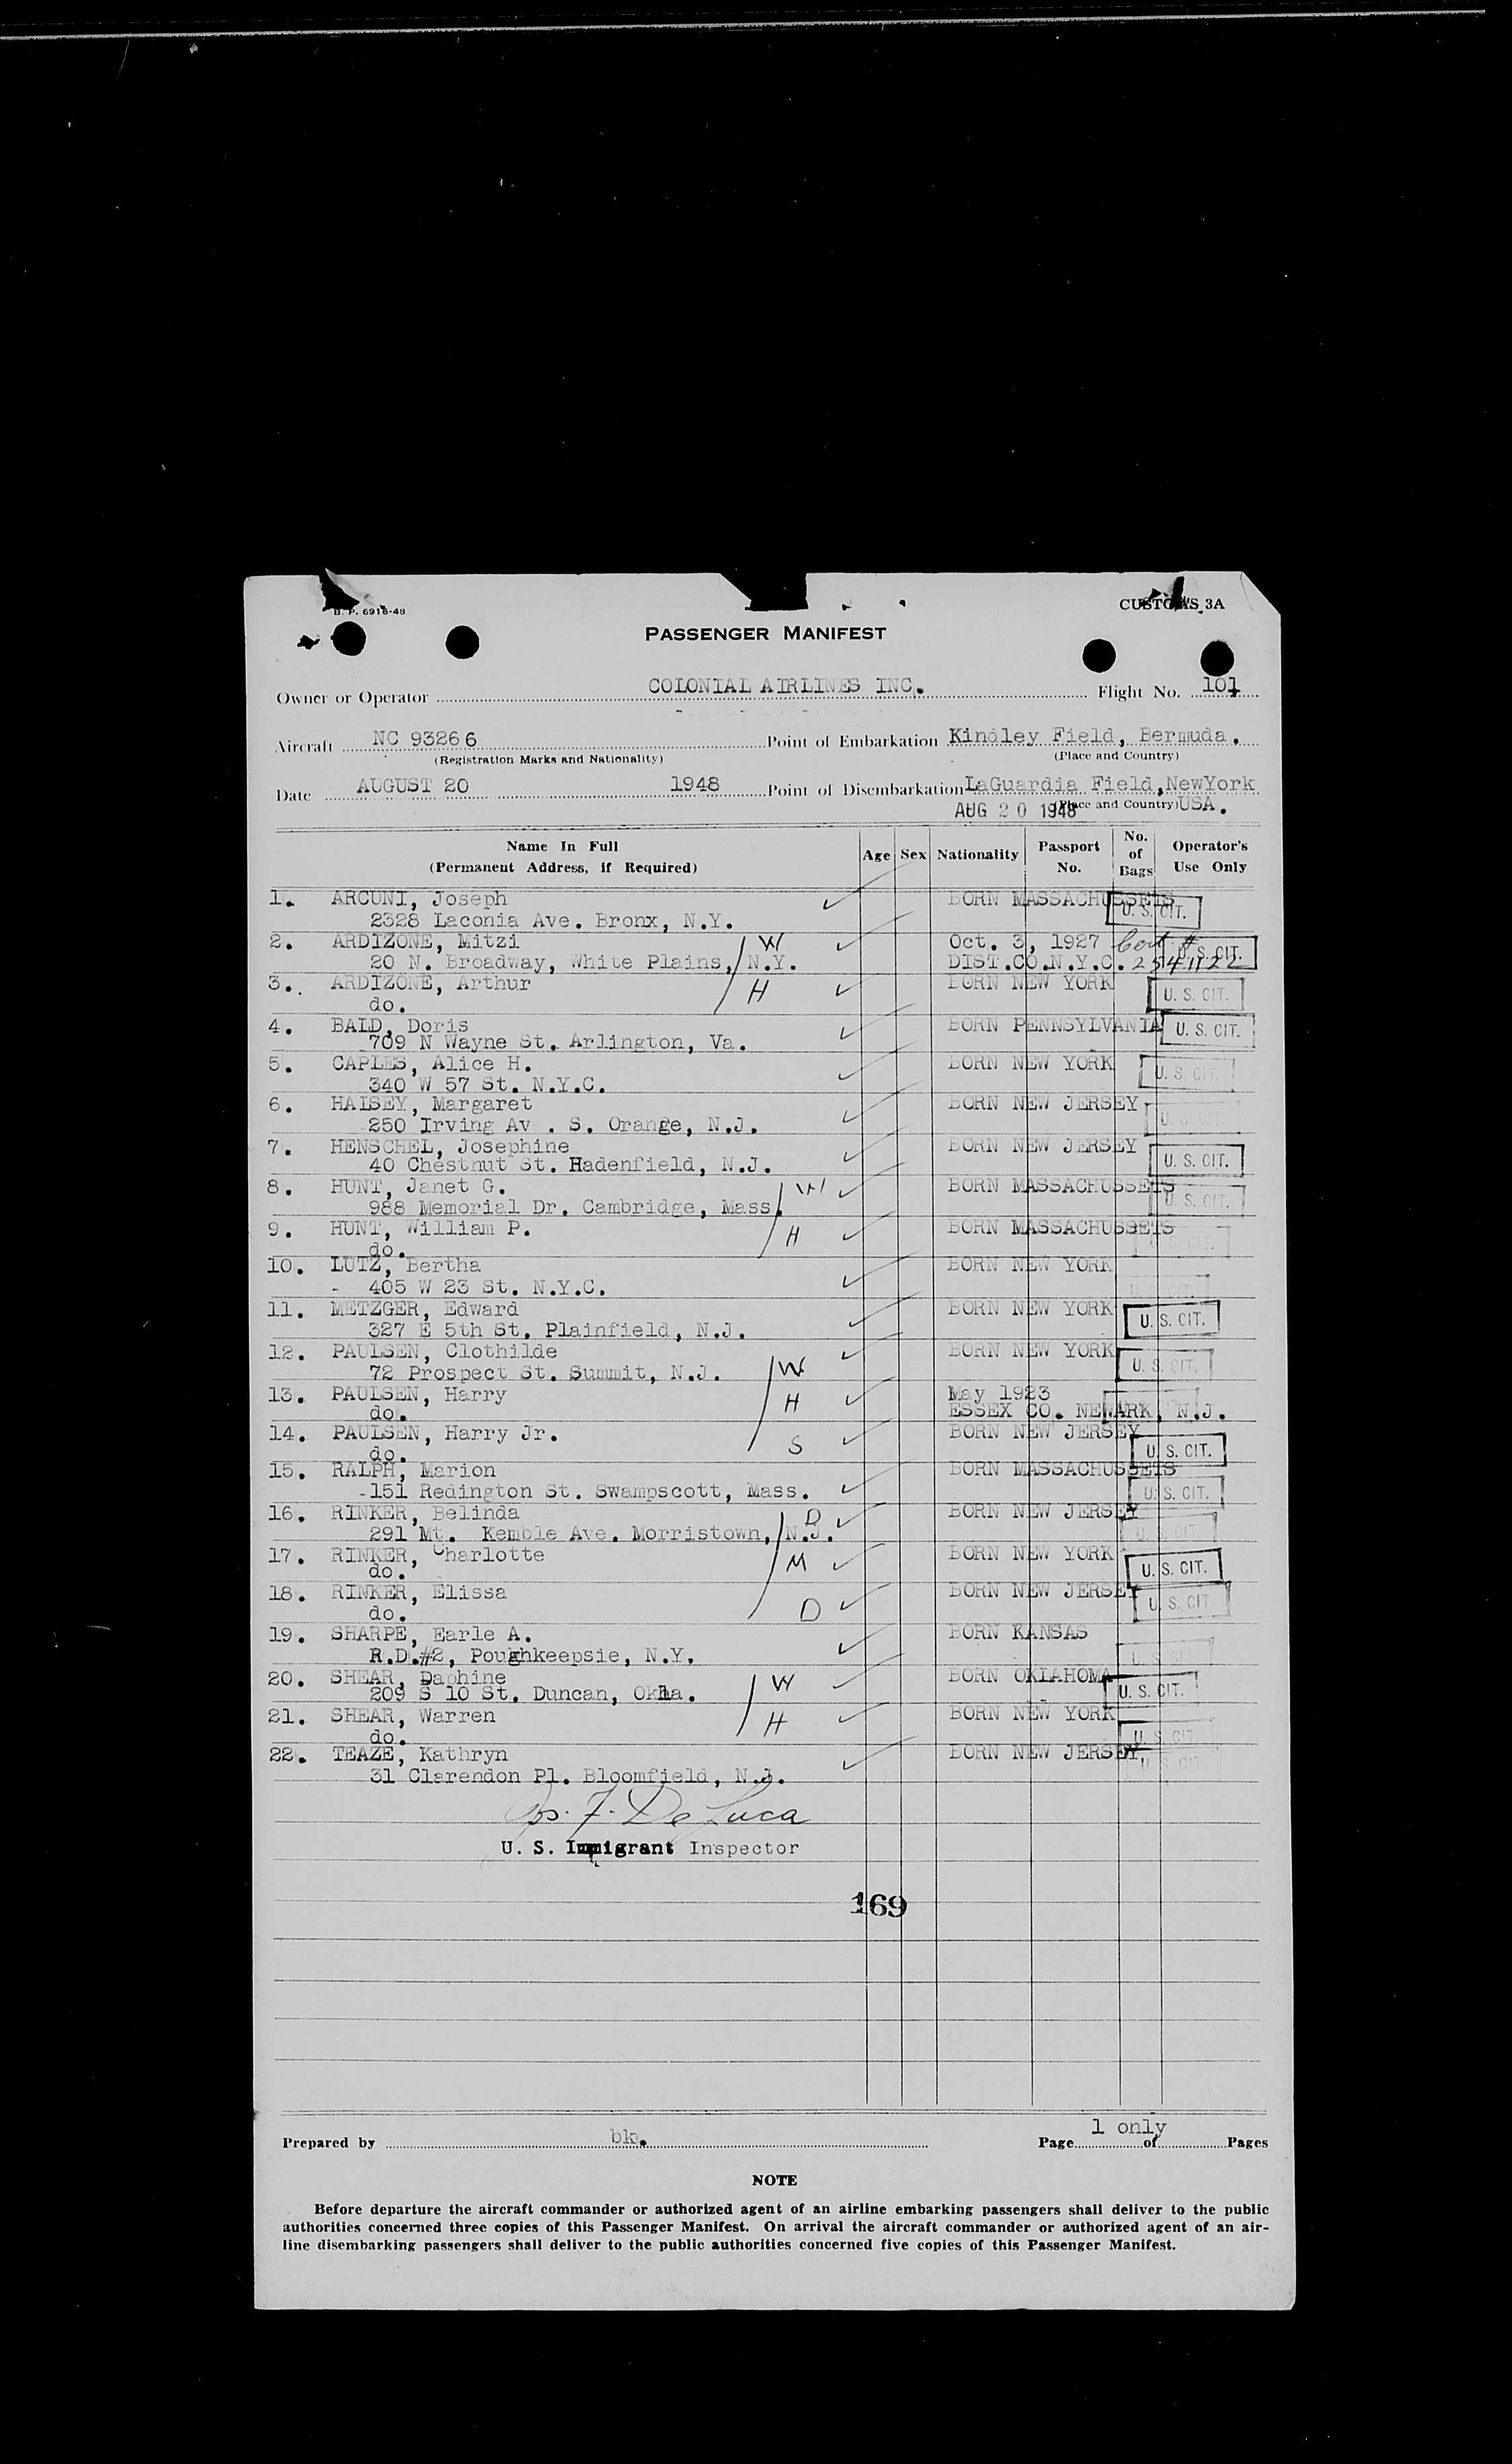 B. P. 6916-48
CUSTOMS 3A
PASSENGER MANIFEST
Owner or Operator COLONIAL AIRLINES INC. Flight No. 101
Aircraft NC 93266 Point of Embarkation Kindley Field, Bermuda.
(Registration Marks and Nationality) (Place and Country)
Date AUGUST 20 1948 Point of Disembarkation LaGuardia Field, NewYork
AUG 20 1948 (Place and Country) USA.
Name In Full (Permanent Address, if Required) Age Sex Nationality Passport No. No. of Bags Operator's Use Only
1. ARCUNI, Joseph BORN MASSACHUSSETS
2328 Laconia Ave. Bronx, N.Y. U. S. CIT.
2. ARDIZONE, Mitzi W Oct. 3, 1927 Cert #
20 N. Broadway, White Plains, N.Y. DIST.CO.N.Y.C. 2541122 U. S. CIT.
3. ARDIZONE, Arthur H BORN NEW YORK
do. U. S. CIT.
4. BALD, Doris BORN PENNSYLVANIA U. S. CIT.
709 N Wayne St. Arlington, Va.
5. CAPLES, Alice H. BORN NEW YORK
340 W 57 St. N.Y.C. U. S. CIT.
6. HALSEY, Margaret BORN NEW JERSEY
250 Irving Av . S. Orange, N.J. U. S. CIT.
7. HENSCHEL, Josephine BORN NEW JERSEY
40 Chestnut St. Hadenfield, N.J. U. S. CIT.
8. HUNT, Janet G. W BORN MASSACHUSSETS
988 Memorial Dr. Cambridge, Mass. U. S. CIT.
9. HUNT, William P. H BORN MASSACHUSSETS
do. U. S. CIT.
10. LUTZ, Bertha BORN NEW YORK
405 W 23 St. N.Y.C.
11. METZGER, Edward BORN NEW YORK
327 E 5th St. Plainfield, N.J. U. S. CIT.
12. PAULSEN, Clothilde BORN NEW YORK
72 Prospect St. Summit, N.J. W U. S. CIT.
13. PAULSEN, Harry H May 1923
do. ESSEX CO. NEWARK, N.J.
14. PAULSEN, Harry Jr. S BORN NEW JERSEY
do. U. S. CIT.
15. RALPH, Marion BORN MASSACHUSSETS
151 Redington St. Swampscott, Mass. U. S. CIT.
16. RINKER, Belinda D BORN NEW JERSEY
291 Mt. Kemble Ave. Morristown, N.J. U. S. CIT.
17. RINKER, Charlotte M BORN NEW YORK
do. U. S. CIT.
18. RINKER, Elissa D BORN NEW JERSEY
do. U. S. CIT.
19. SHARPE, Earle A. BORN KANSAS
R.D.#2, Poughkeepsie, N.Y. U. S. CIT.
20. SHEAR, Daphine W BORN OKLAHOMA
209 S 10 St. Duncan, Okla. U. S. CIT.
21. SHEAR, Warren H BORN NEW YORK
do. U. S. CIT.
22. TEAZE, Kathryn BORN NEW JERSEY.
31 Clarendon Pl. Bloomfield, N.J. U. S. CIT.
Jos. F. De Luca
U. S. Immigrant Inspector
169
Prepared by bk. Page 1 only of Pages
NOTE
Before departure the aircraft commander or authorized agent of an airline embarking passengers shall deliver to the public
authorities concerned three copies of this Passenger Manifest. On arrival the aircraft commander or authorized agent of an air-
line disembarking passengers shall deliver to the public authorities concerned five copies of this Passenger Manifest.